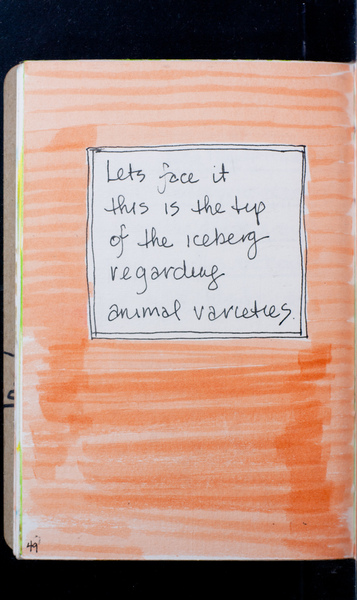 Lets face it
this is the tip
of the iceberg
regarding
animal varieties.
49